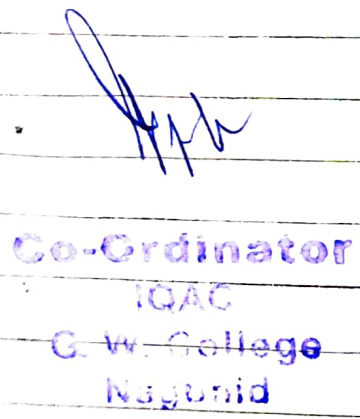 Co-Ordinator
IQAC
G. W. College
Nagbhid